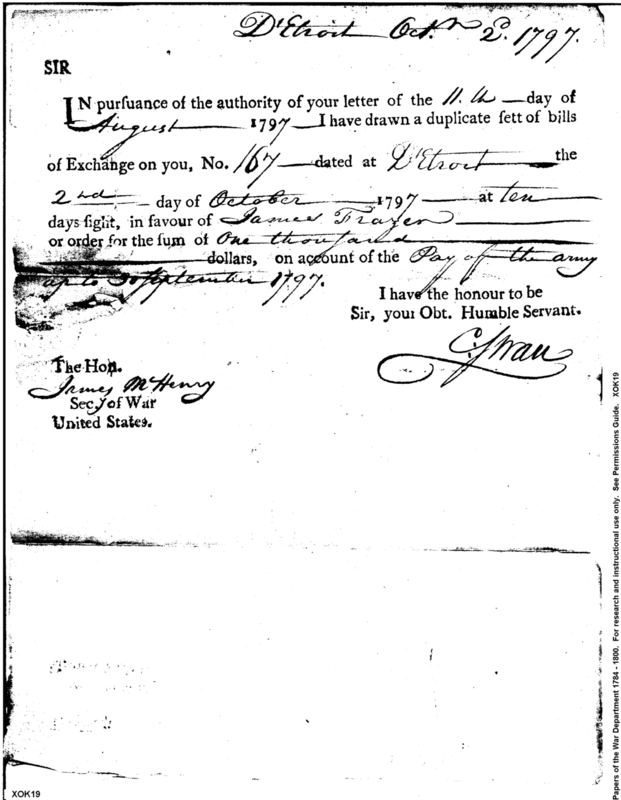 D'Etroit Octr. 2d. 1797.
SIR
IN purſuance of the authority of your letter of the 11.th day of
August 1797 I have drawn a duplicate ſett of bills
of Exchange on you, No. 167 dated at D'Etroit the
2nd day of October 1797 at ten
days ſight, in favour of James Frazer
or order for the ſum of One thousand
dollars, on account of the Pay of the army
up to 30 September 1797.
I have the honour to be
Sir, your Obt. Humble Servant.
C. Swan
The Hon.
James McHenry
Sec.y of War
United States.
Papers of the War Department 1784 - 1800. For research and instructional use only. See Permissions Guide. XOK19
XOK19